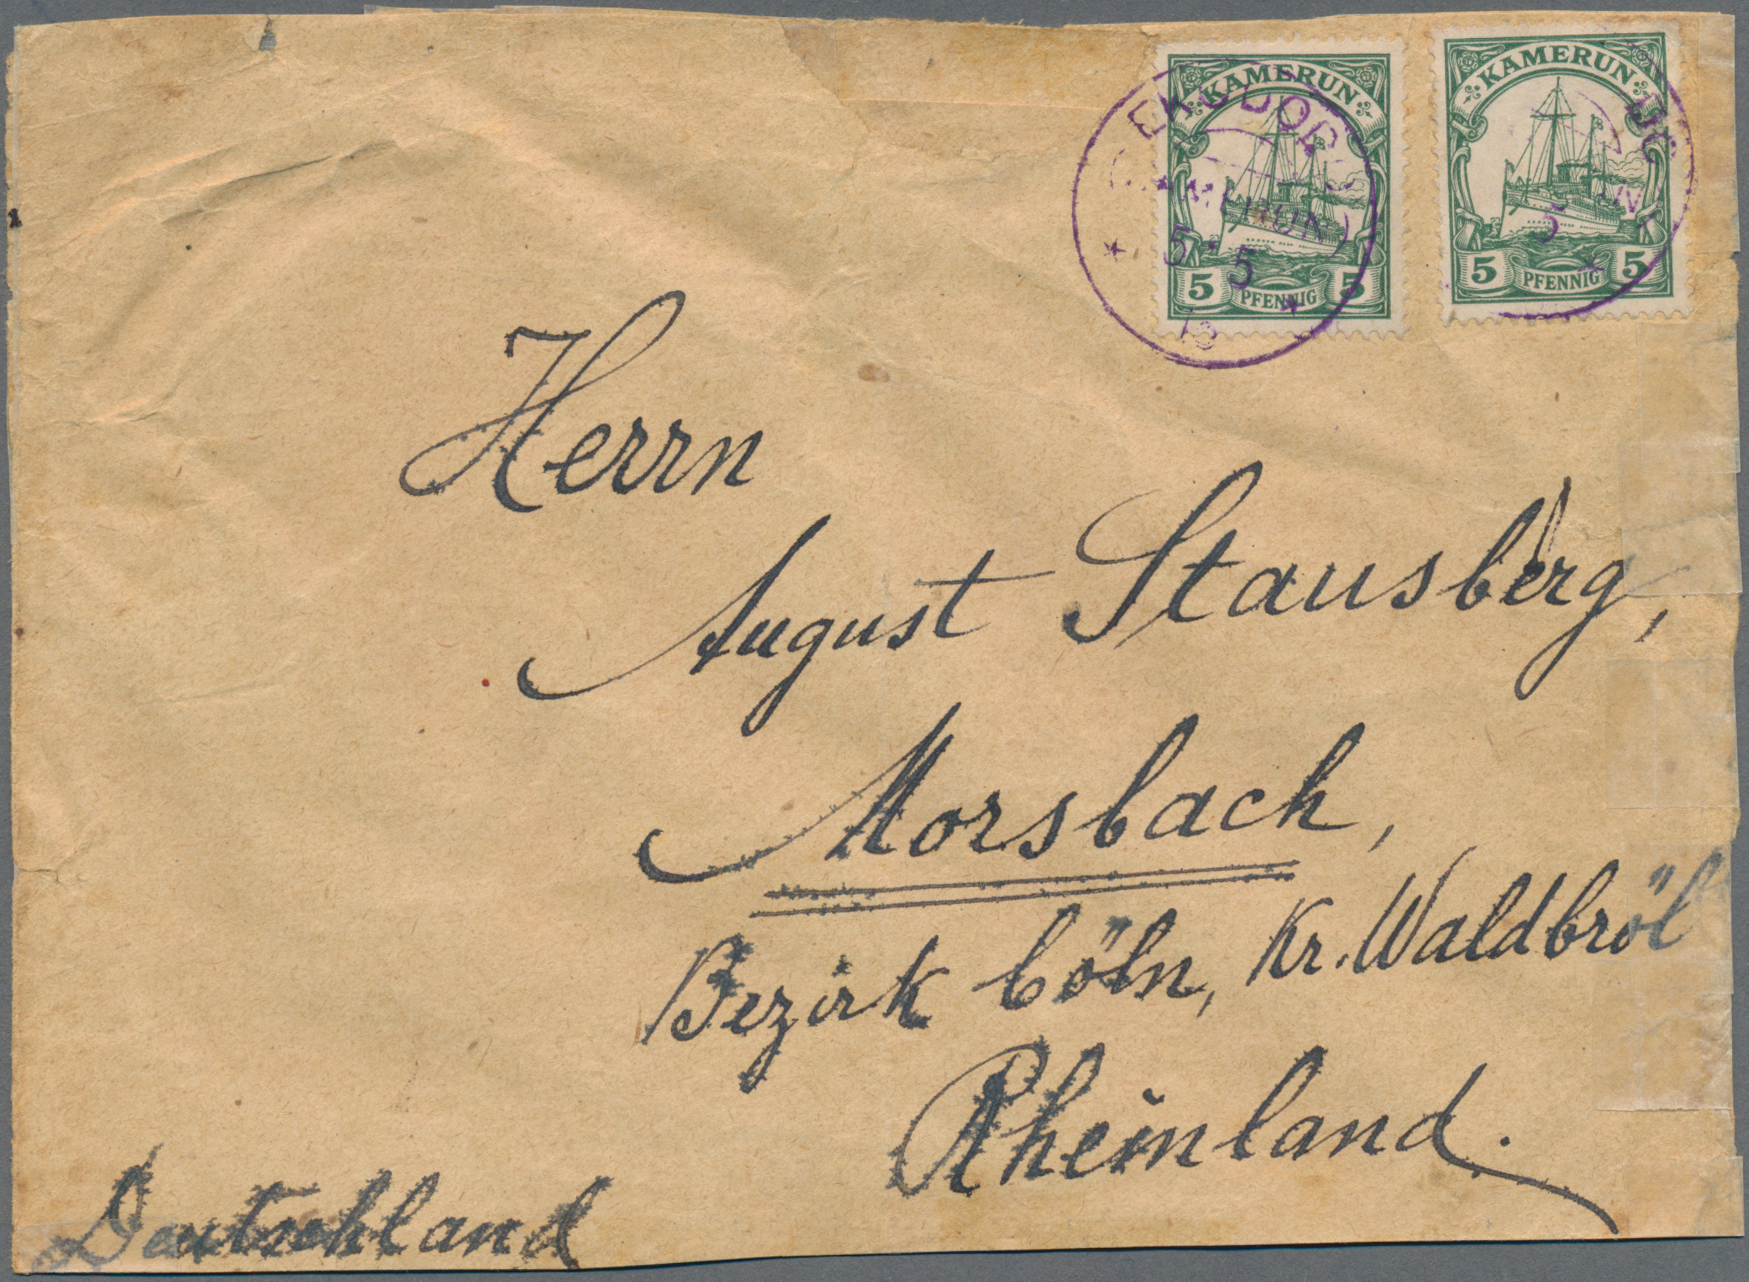 KAMERUN
5 PFENNIG 5
KAMERUN
5 PFENNIG 5
5 5
13
5
Herrn
August Stausberg,
Morsbach,
Bezirk Cöln, Kr. Waldbröl
Rheinland.
Deutschland